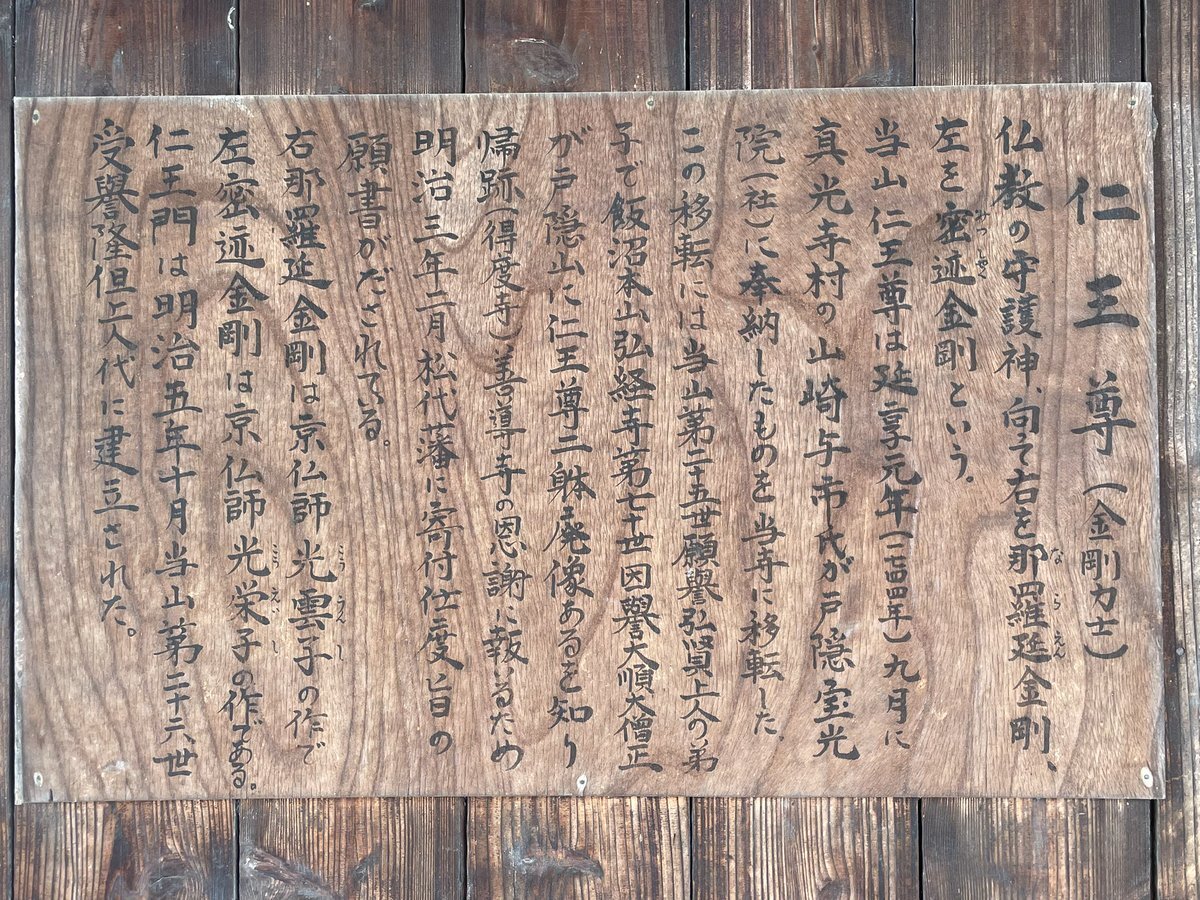 仁王尊（金剛力士）
仏教の守護神、向って右を那羅延金剛、
ならえん
左を密迹金剛という。
みつしゃく
当山仁王尊は延享元年（一七四四年）九月に
真光寺村の山崎与市氏が戸隠宝光
院（社）に奉納したものを当寺に移転した。
この移転には当山第二十五世願譽弘賢上人の弟
子で飯沼本山弘経寺第七十世因譽大順大僧正
が戸隠山に仁王尊二躰廃像あるを知り
帰跡（得度寺）善導寺の恩謝に報いるため
明治三年二月松代藩に寄付仕度旨の
願書がだされている。
右那羅延金剛は京仏師光雲子の作で
こううんし
左密迹金剛は京仏師光栄子の作である。
こうえいし
仁王門は明治五年十月当山第二十六世
受譽隆但上人代に建立された。